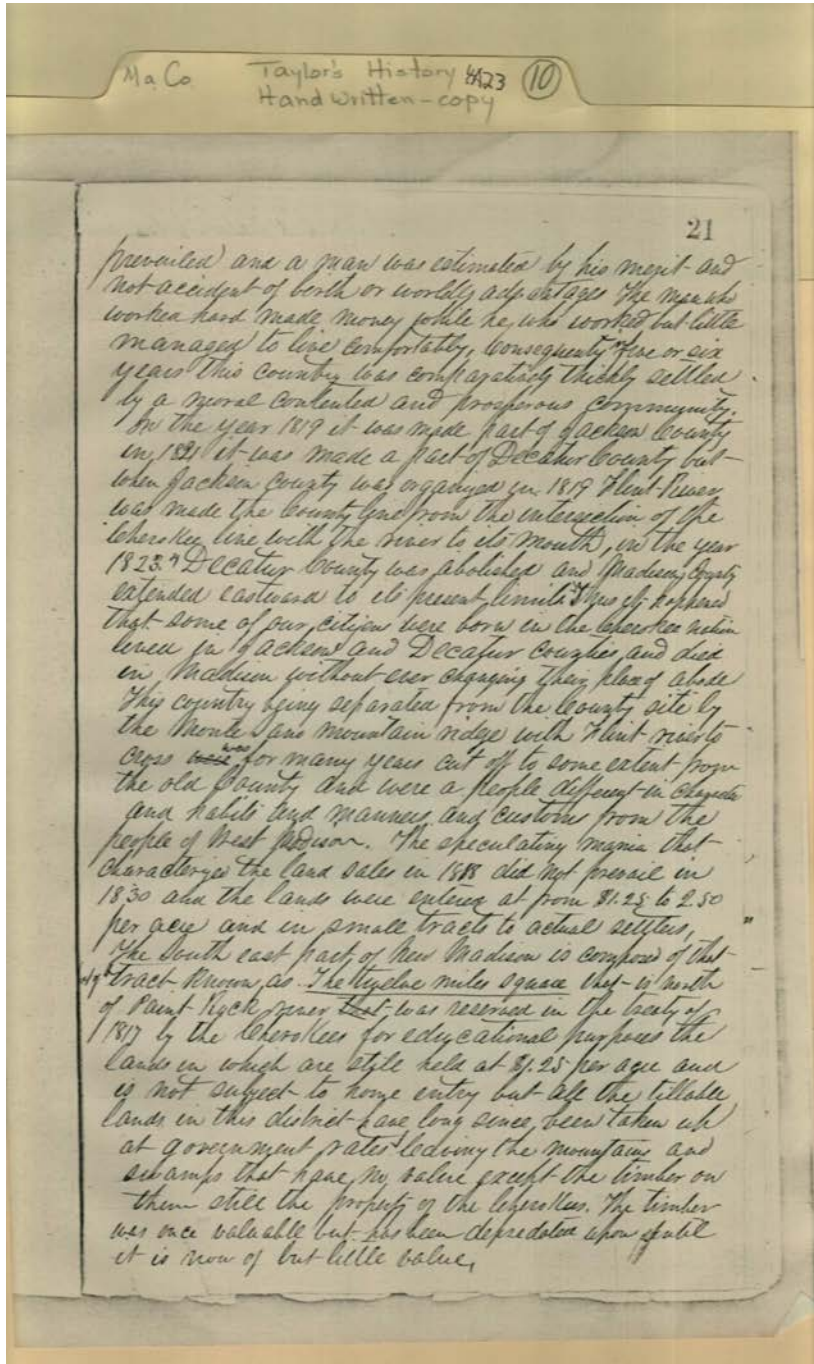 Ma Co Taylor's History 4A23 10
Hand Written - copy
21
prevailed and a man was estimated by his merit and
not accident of berth or worldly advantages The man who
worked hard made money while he who worked but little
managed to live comfortably, Consequently five or six
years this country was comparatively thickly settled
by a moral contented and prosperous community.
In the year 1819 it was made part of Jackson County
in 1821 it was made a part of Decatur County but
when Jackson County was organized in 1819 Flint River
was made the County line from the intersection of the
Cherokee line with the river to its mouth, in the year
1823 Decatur County was abolished and Madison County
extended eastward to its present limits Thus it happened
that some of our citizen were born in the Cherokee nation
lived in Jackson and Decatur counties, and died
in Madison without ever changing their place of abode
This country being separated from the County site by
the Monte Sano mountain ridge with Flint river to
cross was for many years cut off to some extent from
the old County and were a people different in character
and habits and manners and customs from the
people of West Madison. The speculating mania that
characterized the land sales in 1818 did not prevail in
1830 and the lands were entered at from $1.25 to 2.50
per acre and in small tracts to actual settlers,
The South east part of New Madison is composed of that
tract known as The twelve miles square that is north
of Paint Rock river that was reserved in the treaty of
1817 by the Cherokees for educational purposes the
lands in which are still held at $1.25 per acre and
is not subject to home entry but all the tillable
lands in this district have long since been taken up
at government rates leaving the mountains and
swamps that have no value except the timber on
them still the property of the Cherokees. The timber
was once valuable but has been depredated upon until
it is now of but little value,